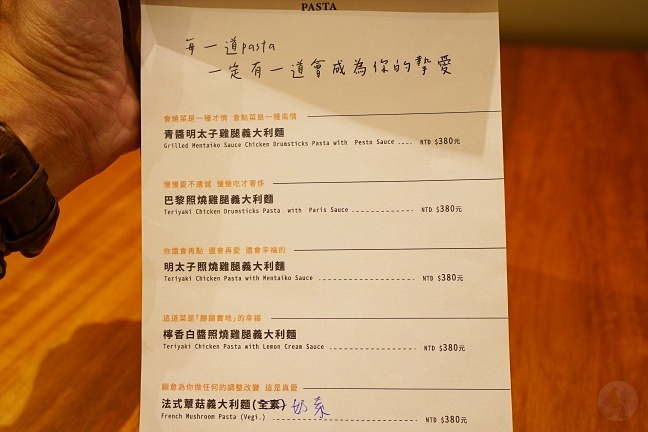 PASTA
每一道pasta
一定有一道會成為你的摯愛
會燒菜是一種才情 會點菜是一種風情
青醬明太子雞腿義大利麵
Grilled Mentaiko Sauce Chicken Drumsticks Pasta with Pesto Sauce .... NTD $380元
慢慢愛不遺憾 慢慢吃才奢侈
巴黎照燒雞腿義大利麵
Teriyaki Chicken Drumsticks Pasta with Paris Sauce NTD $380元
你還會再點 還會再愛 還會幸福的
明太子照燒雞腿義大利麵
Teriyaki Chicken Pasta with Mentaiko Sauce NTD $380元
這道菜是「腳踏實地」的幸福
檸香白醬照燒雞腿義大利麵
Teriyaki Chicken Pasta with Lemon Cream Sauce NTD $380元
願意為你做任何的調整改變 這是真愛
法式蕈菇義大利麵(全素) 奶素
French Mushroom Pasta (Vegi.) NTD $380元